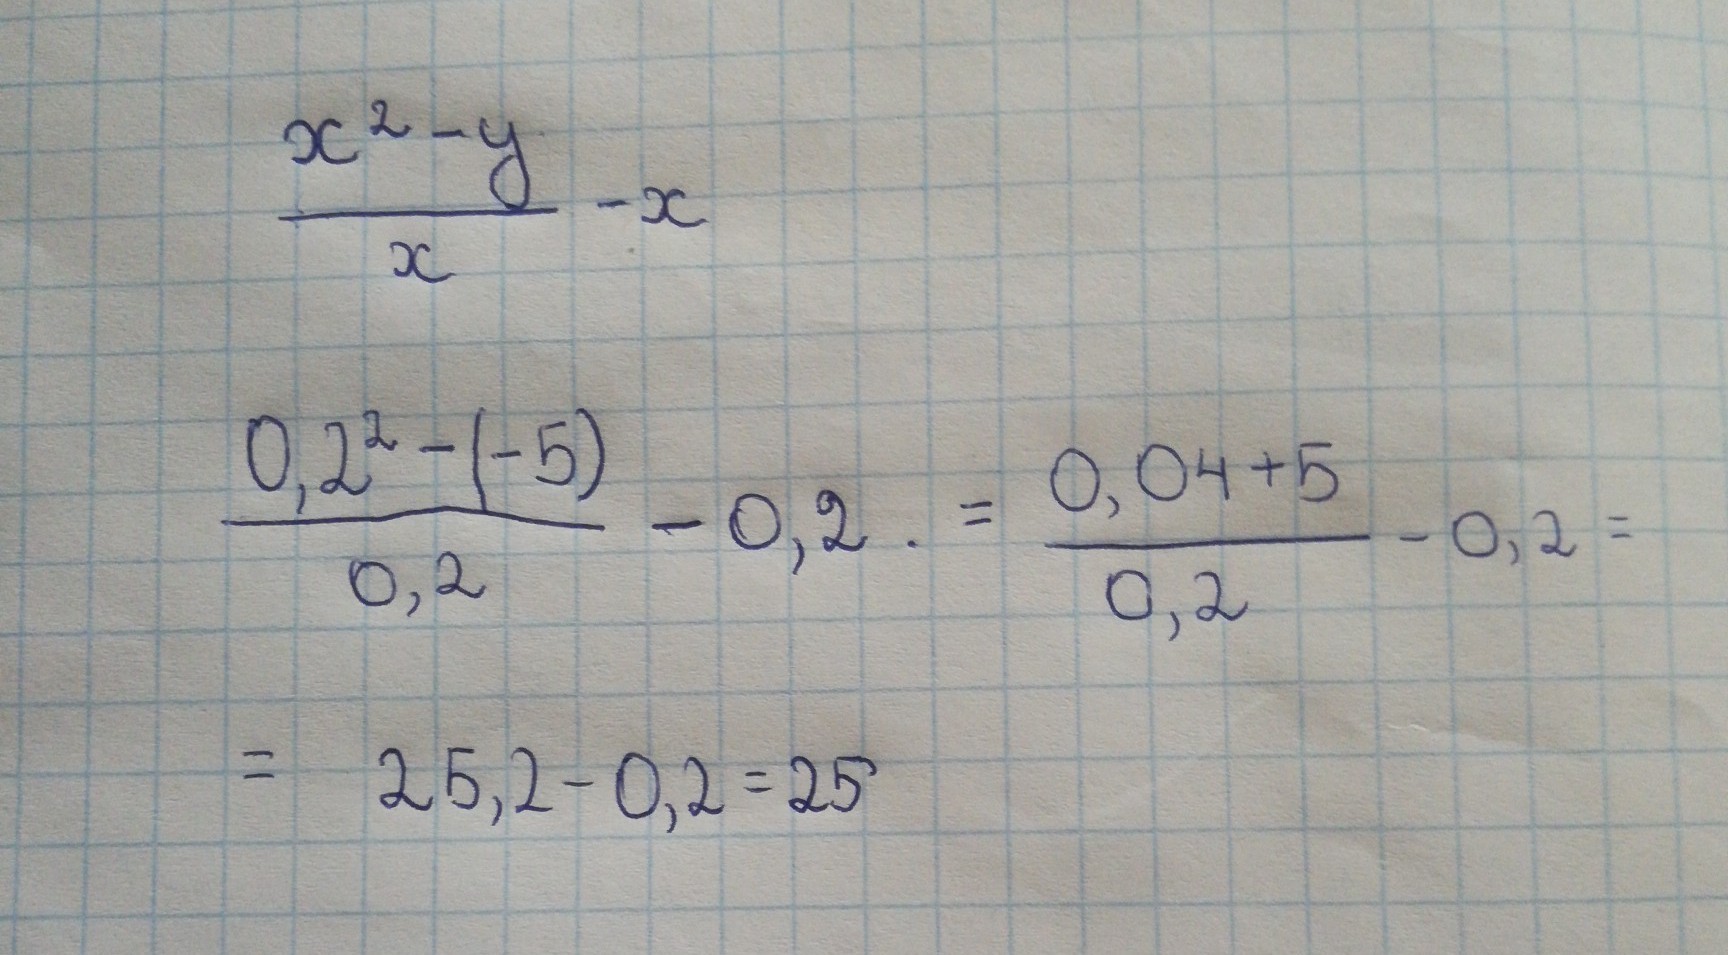 x² - y
— - x
x
0,2² - (-5)
— - 0,2 . = 0,04 + 5 / 0,2 - 0,2 =
0,2
= 25,2 - 0,2 = 25